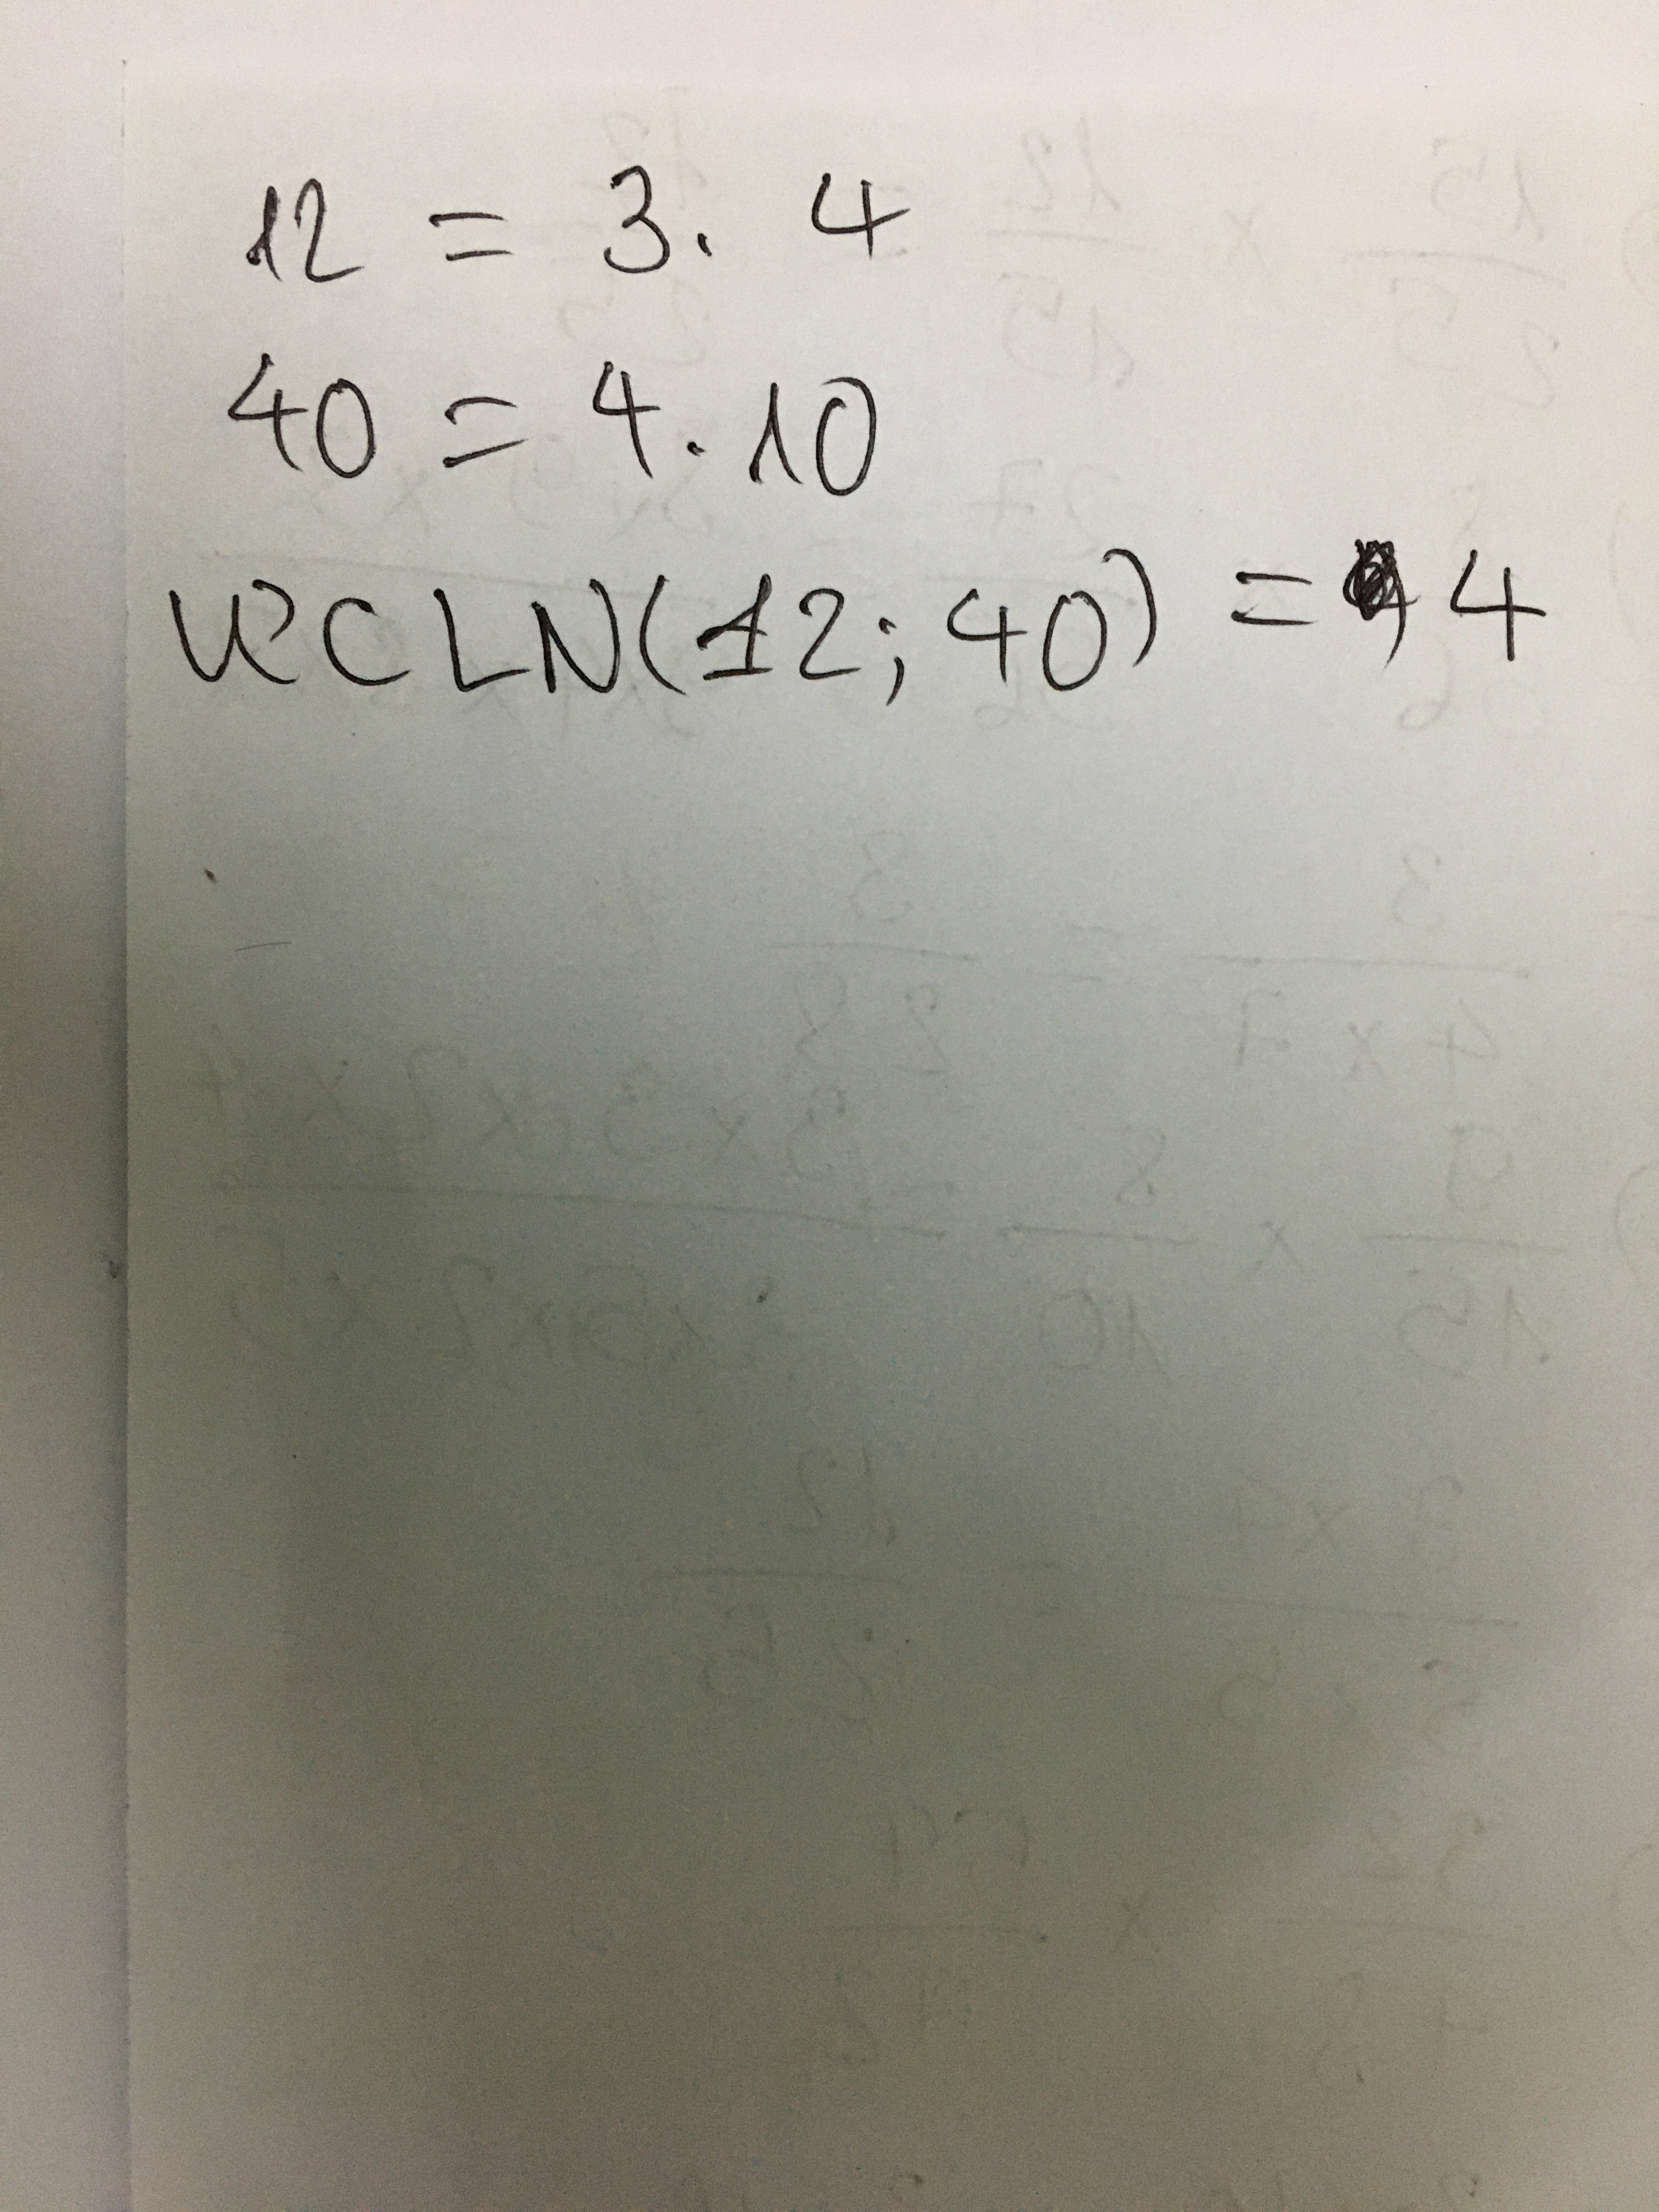 12 = 3. 4
40 = 4. 10
ƯCLN(12; 40) = 4